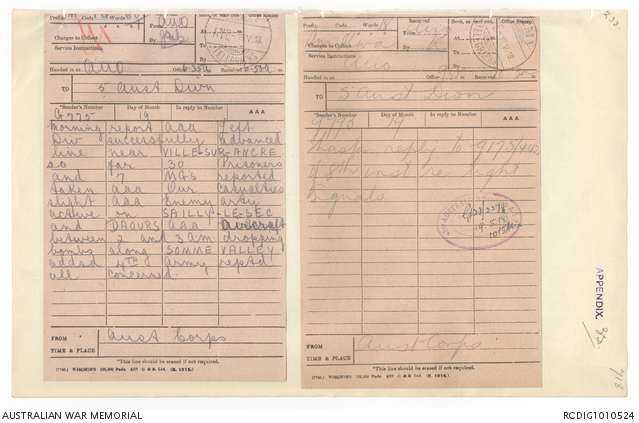 Prefix Code Words
Charges to Collect
Service Instructions.
AUO
Handed in at AUO Office 6.35a Received
TO 5 Aust Divn
Sender's Number Day of Month In reply to Number AAA
G775 19
morning report aaa Left
Div successfully advanced
line near VILLE-SUR-ANCRE
so far 30 Prisoners
and 7 MGs reported
taken aaa Our casualties
slight aaa Enemy arty
active on SAILLY-LE-SEC
and DAOURS aaa Aircraft
between 2 and 3 am dropping
bombs along SOMME VALLEY
added 4TH Army reptd
all concerned
FROM
TIME & PLACE Aust Corps
*This line should be erased if not required.
Prefix Code Words 18
Received
Office Stamp
Charges to Collect
Service Instructions.
Handed in at Office Received
TO 5 Aust Divn
Sender's Number Day of Month In reply to Number AAA
19
reply to
of 8th inst re light
signals
19.5.18
FROM
TIME & PLACE Aust Corps
*This line should be erased if not required.
APPENDIX.
AUSTRALIAN WAR MEMORIAL
RCDIG1010524